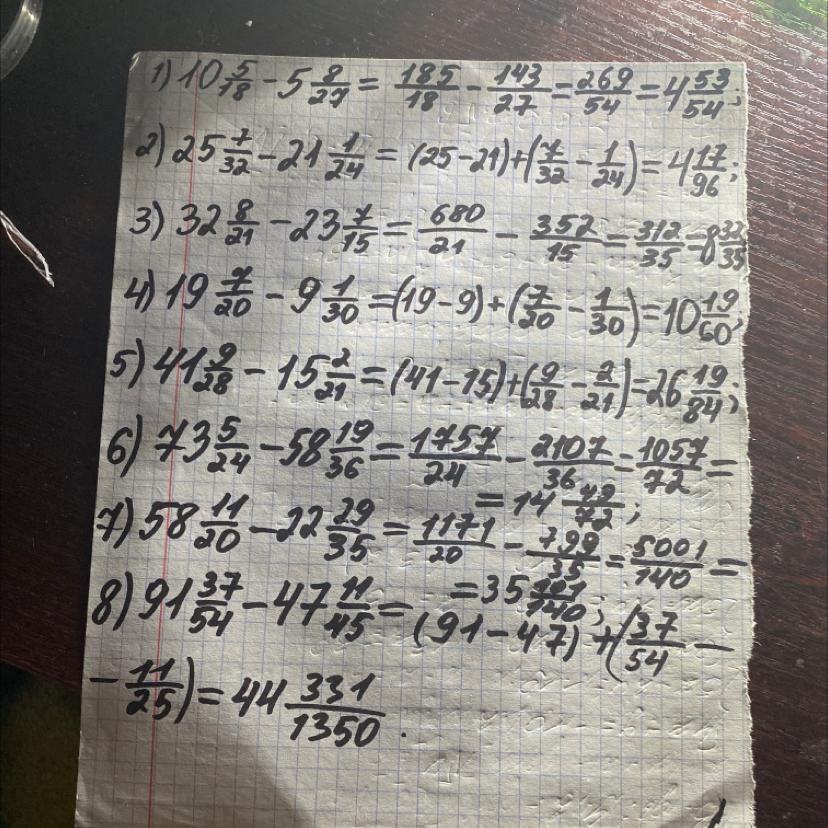 1) 10 5/18 - 5 8/27 = 185/18 - 143/27 = 269/54 = 4 53/54;
2) 25 7/32 - 21 1/24 = (25-21)+(7/32 - 1/24) = 4 17/96;
3) 32 8/21 - 23 7/15 = 680/21 - 352/15 = 312/35 = 8 32/35
4) 19 7/20 - 9 1/30 = (19-9)+(7/20 - 1/30) = 10 19/60;
5) 41 9/28 - 15 2/21 = (41-15)+(9/28 - 2/21) = 26 19/84;
6) 73 5/24 - 58 19/36 = 1757/24 - 2107/36 = 1057/72 =
= 14 49/72;
7) 58 11/20 - 22 29/35 = 1171/20 - 799/35 = 5001/140 =
= 35 101/140;
8) 91 37/54 - 47 11/45 = (91-47)+(37/54 -
- 11/25) = 44 331/1350.